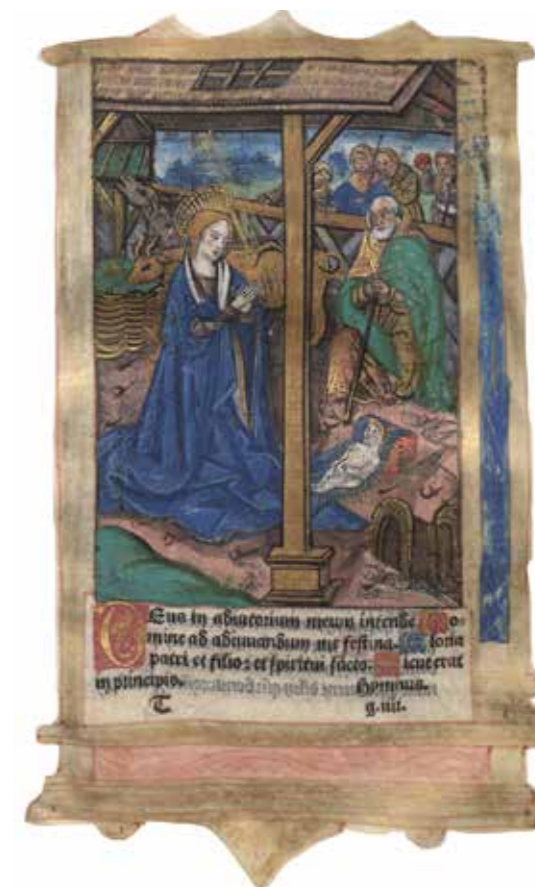 Eus in adiutorium meum intende Do
mine ad adiuuandum me festina. Gloria
patri et filio: et spiritui sācto. Sicut erat
in principio. Hymnus.
T g.iii.